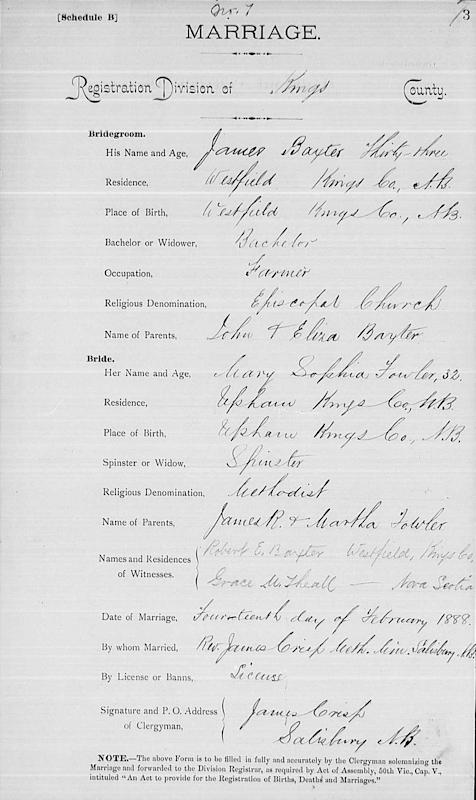 No. 7
[Schedule B]
13
MARRIAGE.
Registration Division of Kings County.
Bridegroom.
His Name and Age, James Baxter Thirty-three
Residence, Westfield Kings Co, N.B.
Place of Birth, Westfield Kings Co., N.B.
Bachelor or Widower, Bachelor
Occupation, Farmer
Religious Denomination, Episcopal Church
Name of Parents, John & Eliza Baxter
Bride.
Her Name and Age, Mary Sophia Fowler, 32.
Residence, Upham Kings Co, N.B.
Place of Birth, Upham Kings Co, N.B.
Spinster or Widow, Spinster
Religious Denomination, Methodist
Name of Parents, James R. & Martha Fowler
Names and Residences of Witnesses. Robert E. Baxter Westfield, Kings Co,
Grace M. Theall — Nova Scotia
Date of Marriage, Fourteenth day of February 1888.
By whom Married, Rev. James Crisp Meth. Min. Salisbury N.B.
By License or Banns, License
Signature and P. O. Address of Clergyman, James Crisp
Salisbury N.B.
NOTE.—The above Form is to be filled in fully and accurately by the Clergyman solemnizing the
Marriage and forwarded to the Division Registrar, as required by Act of Assembly, 50th Vic., Cap. V.,
intituled "An Act to provide for the Registration of Births, Deaths and Marriages."